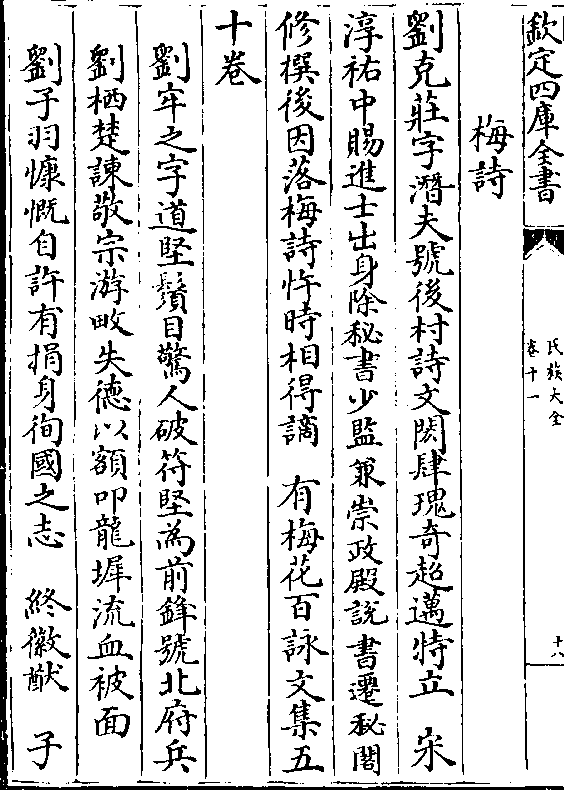 欽定四庫全書
氏族大全
卷十一
十八
梅詩
劉克莊字潛夫號後村詩文閎肆瑰奇超邁特立　宋
淳祐中賜進士出身除秘書少監兼崇政殿說書遷秘閣
修撰後因落梅詩忤時相得謫　有梅花百詠文集五
十卷
劉牢之字道堅鬚目驚人破符堅為前鋒號北府兵
劉栖楚諫敬宗游畋失德以額叩龍墀流血被面
劉子羽慷慨自許有捐身徇國之志　終徽猷　子